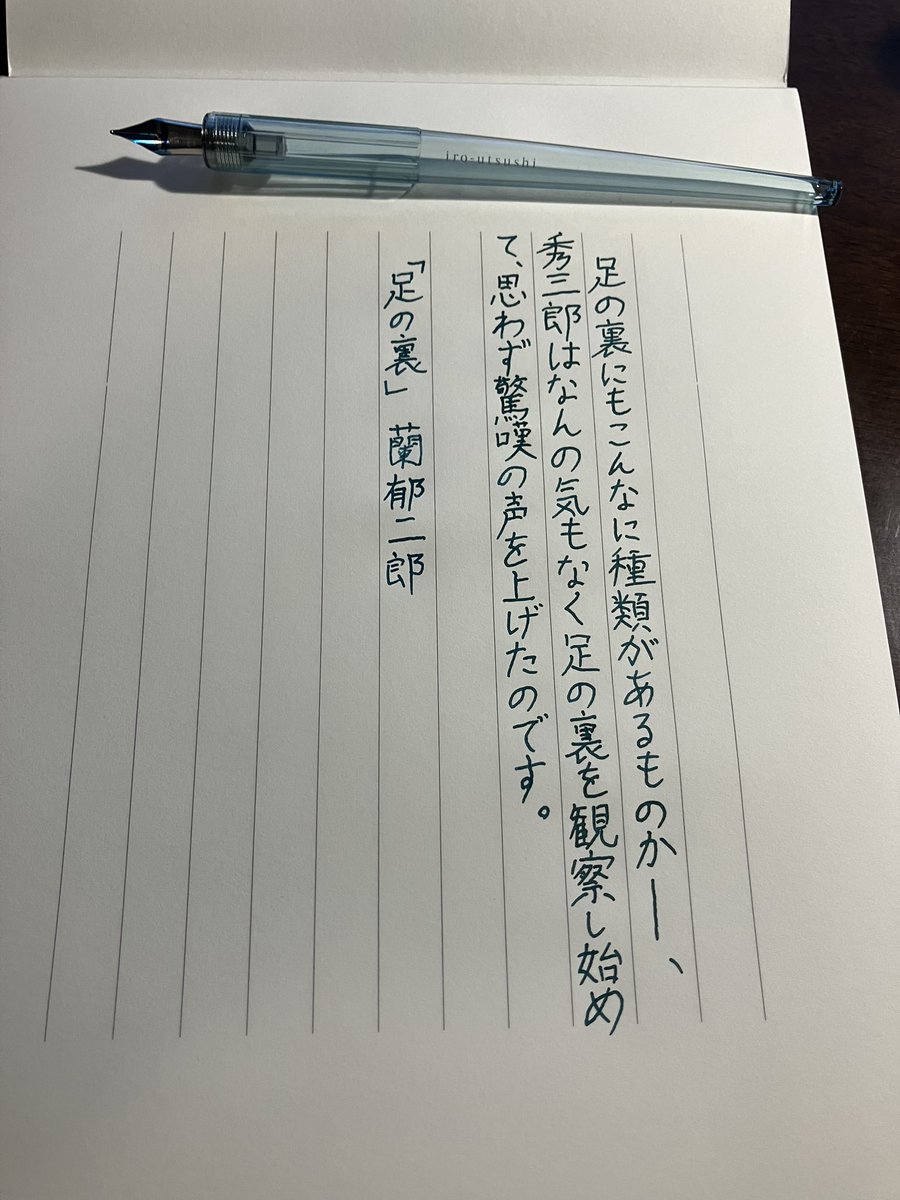 iro-utsushi
足の裏にもこんなに種類があるものか―、
秀三郎はなんの気もなく足の裏を観察し始め
て、思わず驚嘆の声を上げたのです。
「足の裏」 蘭郁二郎